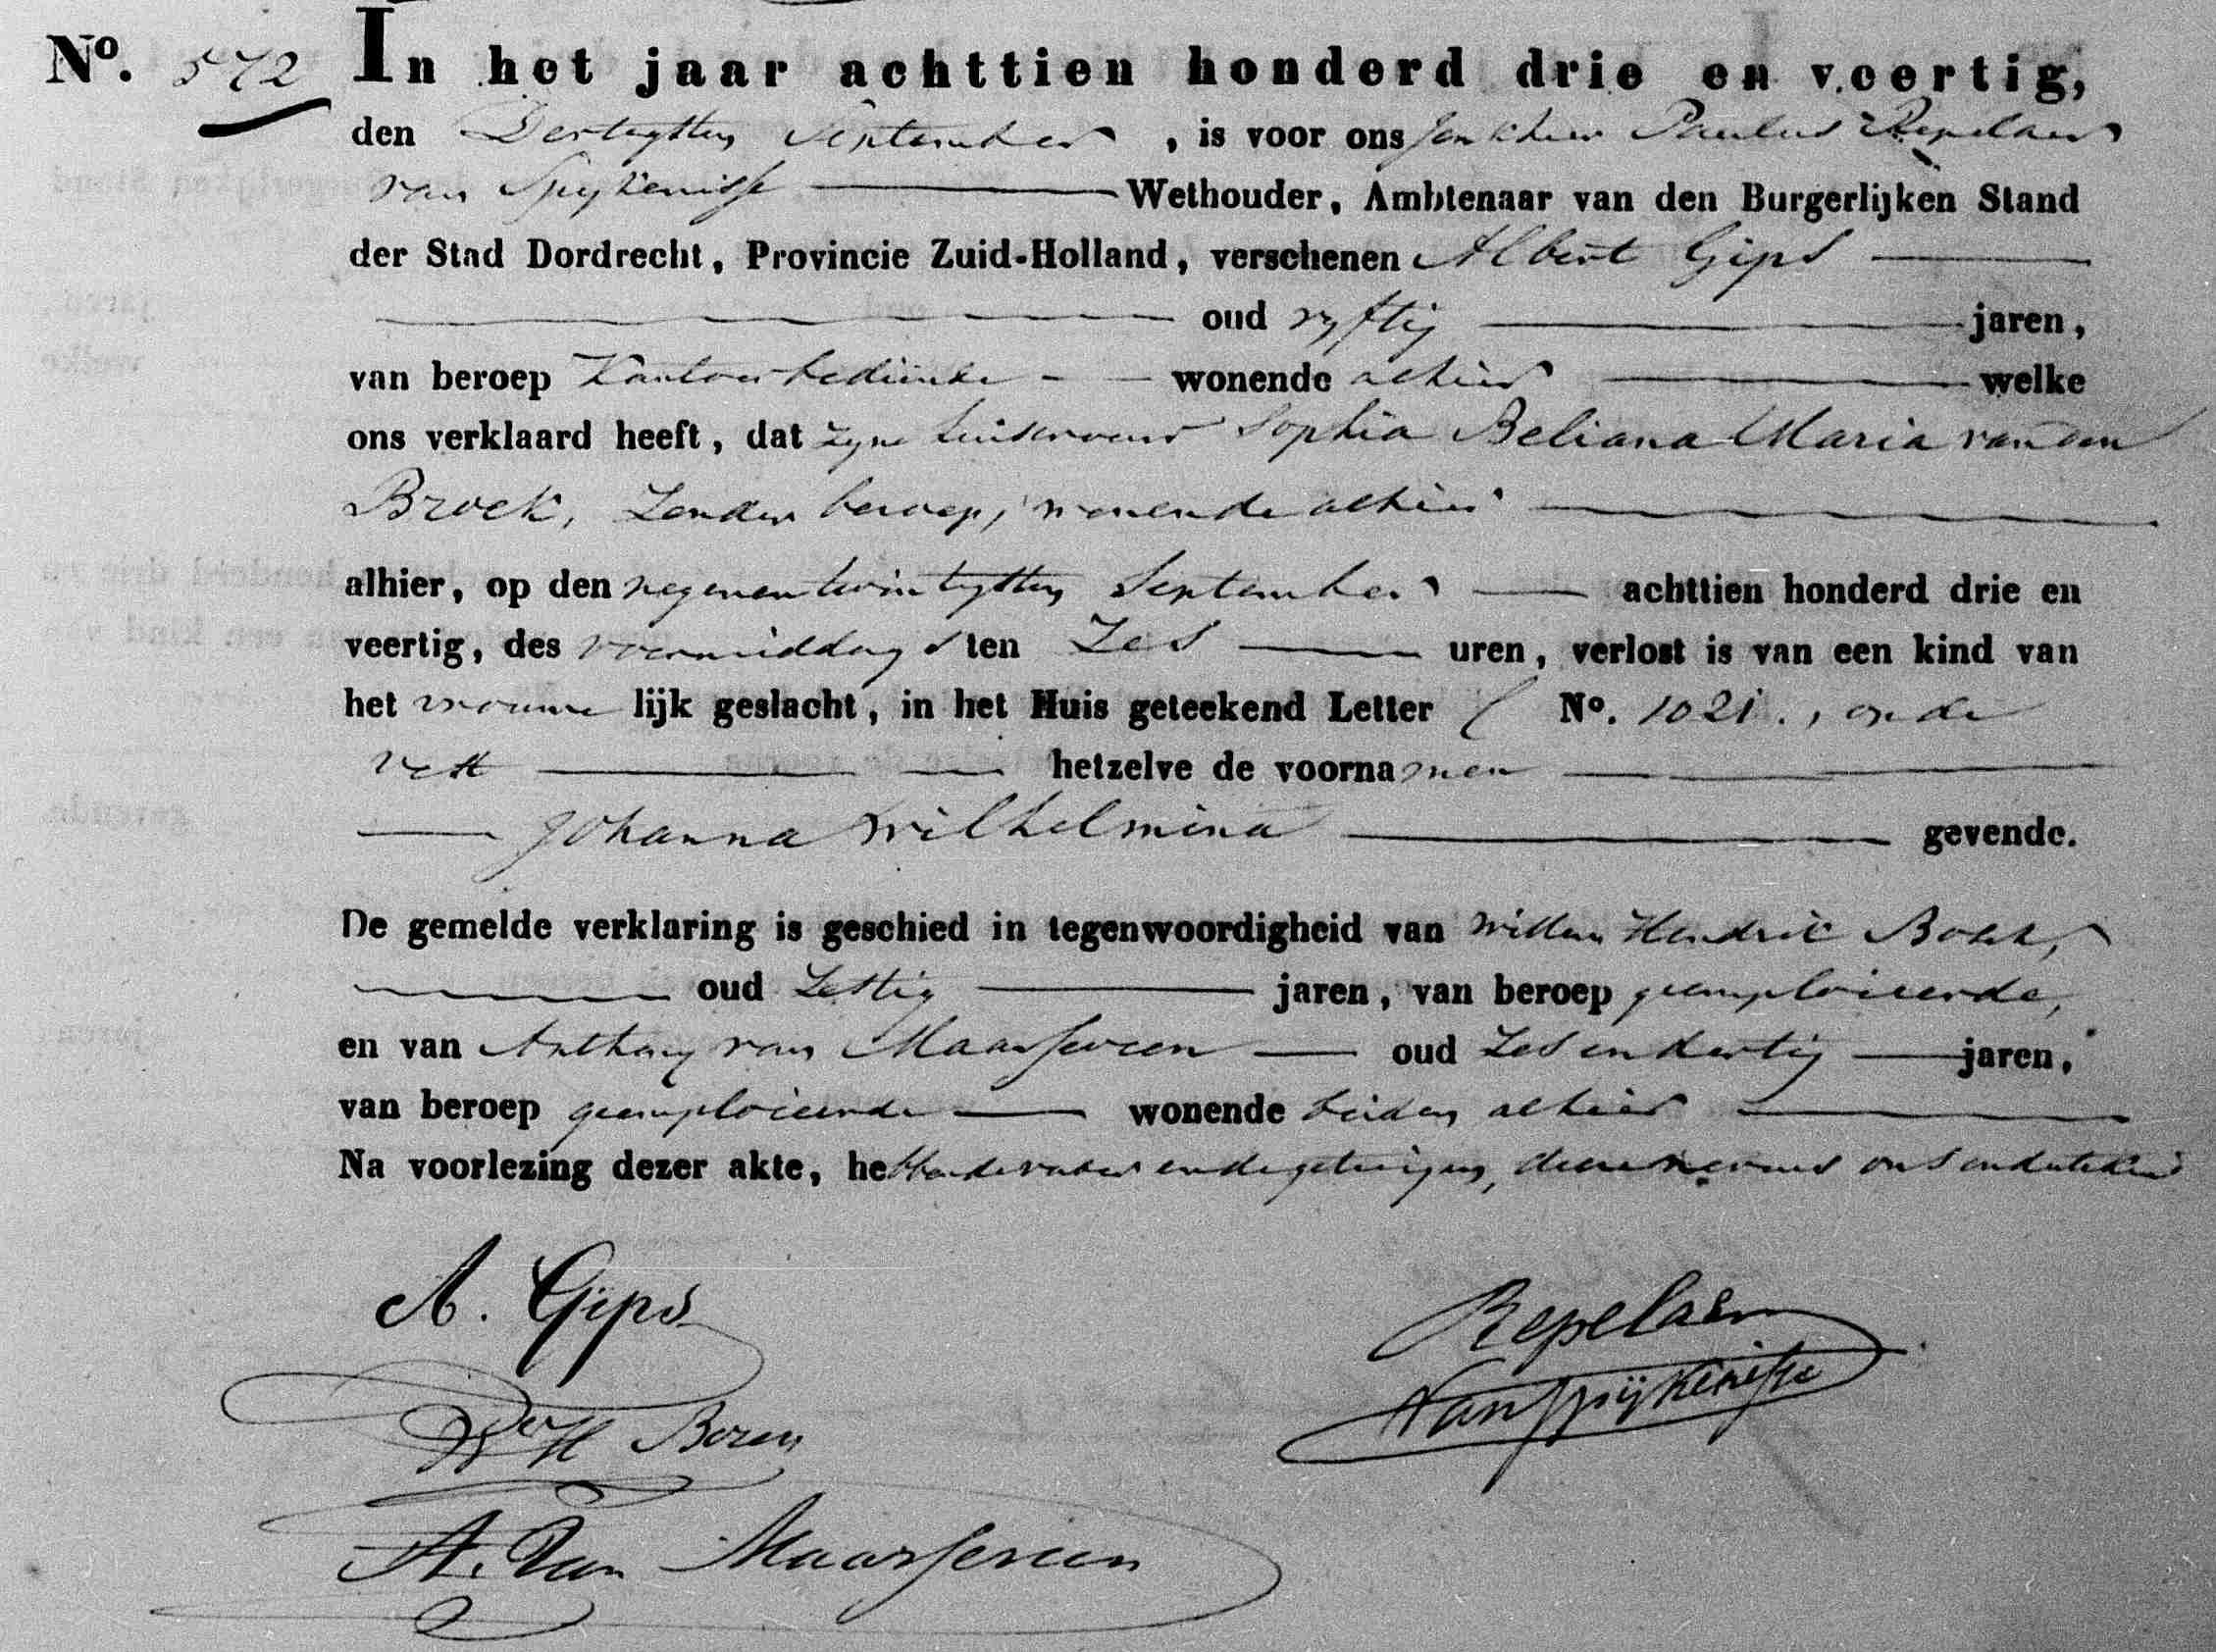 No. 572 In het jaar achttien honderd drie en veertig,
den Dertigsten September, is voor ons Jonkheer Paulus Repelaer
van Spijkenisse Wethouder, Ambtenaar van den Burgerlijken Stand
der Stad Dordrecht, Provincie Zuid-Holland, verschenen Albert Gips
oud vyftig jaren,
van beroep Kantoorbediende wonende alhier welke
ons verklaard heeft, dat zyne huisvrouw Sophia Beliana Maria van den
Broek, Zonder beroep, wonende alhier
alhier, op den negenentwintigsten September achttien honderd drie en
veertig, des voormiddags ten Zes uren, verlost is van een kind van
het vrouwelijk geslacht, in het Huis geteekend Letter C No. 1021., op de
hetzelve de voornamen
Johanna Wilhelmina gevende.
De gemelde verklaring is geschied in tegenwoordigheid van Willem Hendrik
oud Zestig jaren, van beroep geemploieerde,
en van Anthony van Maarseveen oud Zesendertig jaren,
van beroep geemploieerde wonende beiden alhier
Na voorlezing dezer akte, hebben de vader en de getuigen, dezen nevens ons onderteekend
A. Gips
Repelaer
van Spijkenisse
W H
A. Van Maarseveen